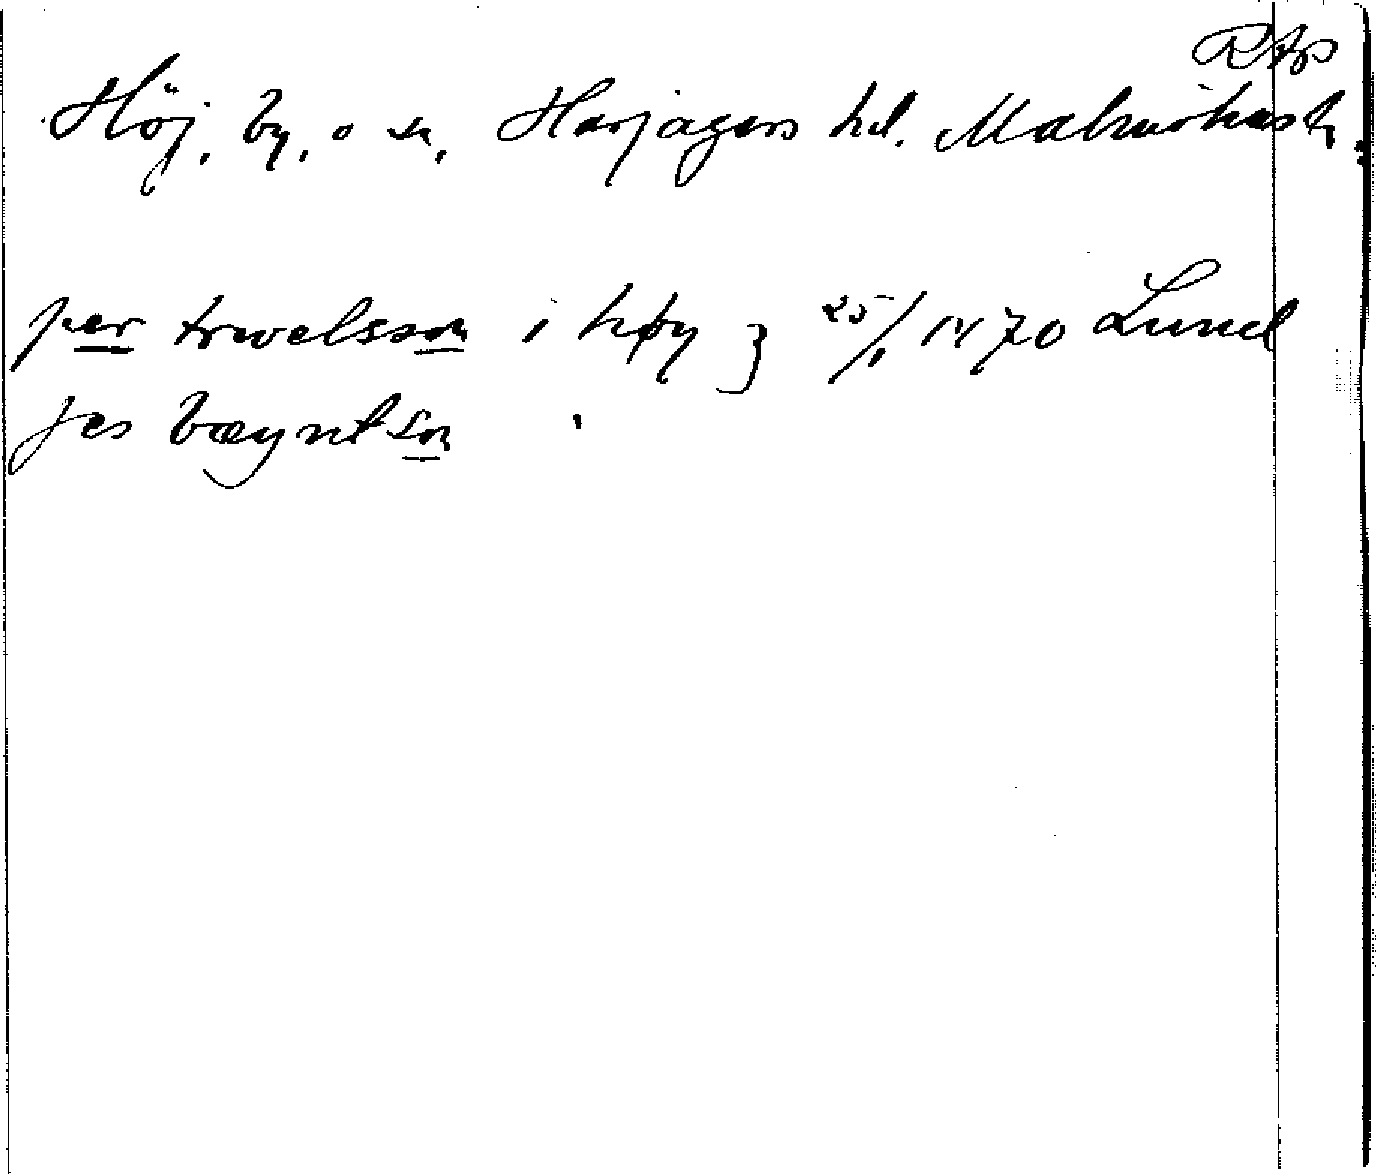 RAp
Höj, by, o sn, Harjagers hd. Malmöhus l.
per trwelsson i høy } 25/1 1470 Lund
jes bæyntson "